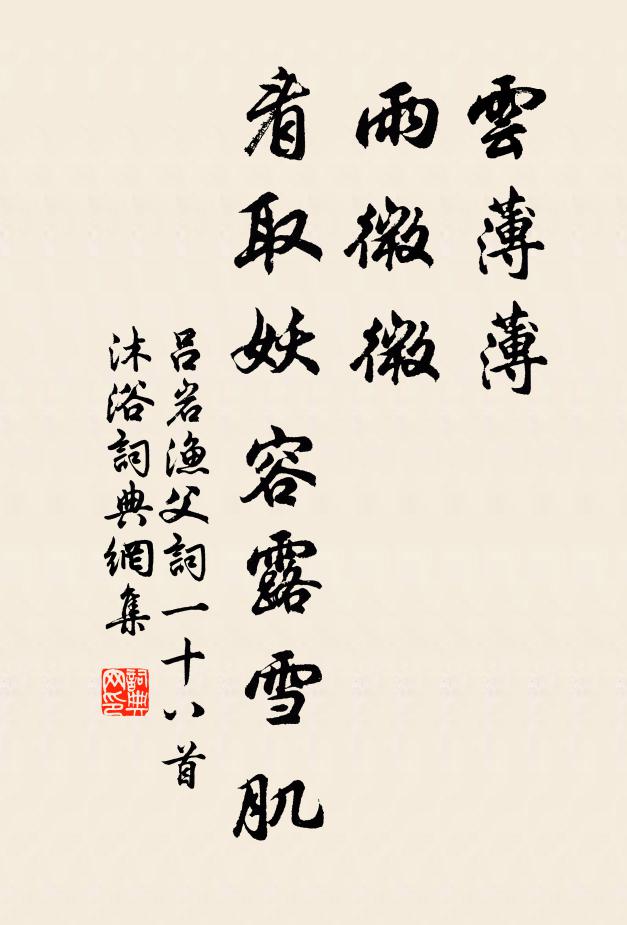 雲薄薄
雨微微
看取妖容露雪肌
呂岩漁父詞一十八首
沐浴詞典網集
詞典网印